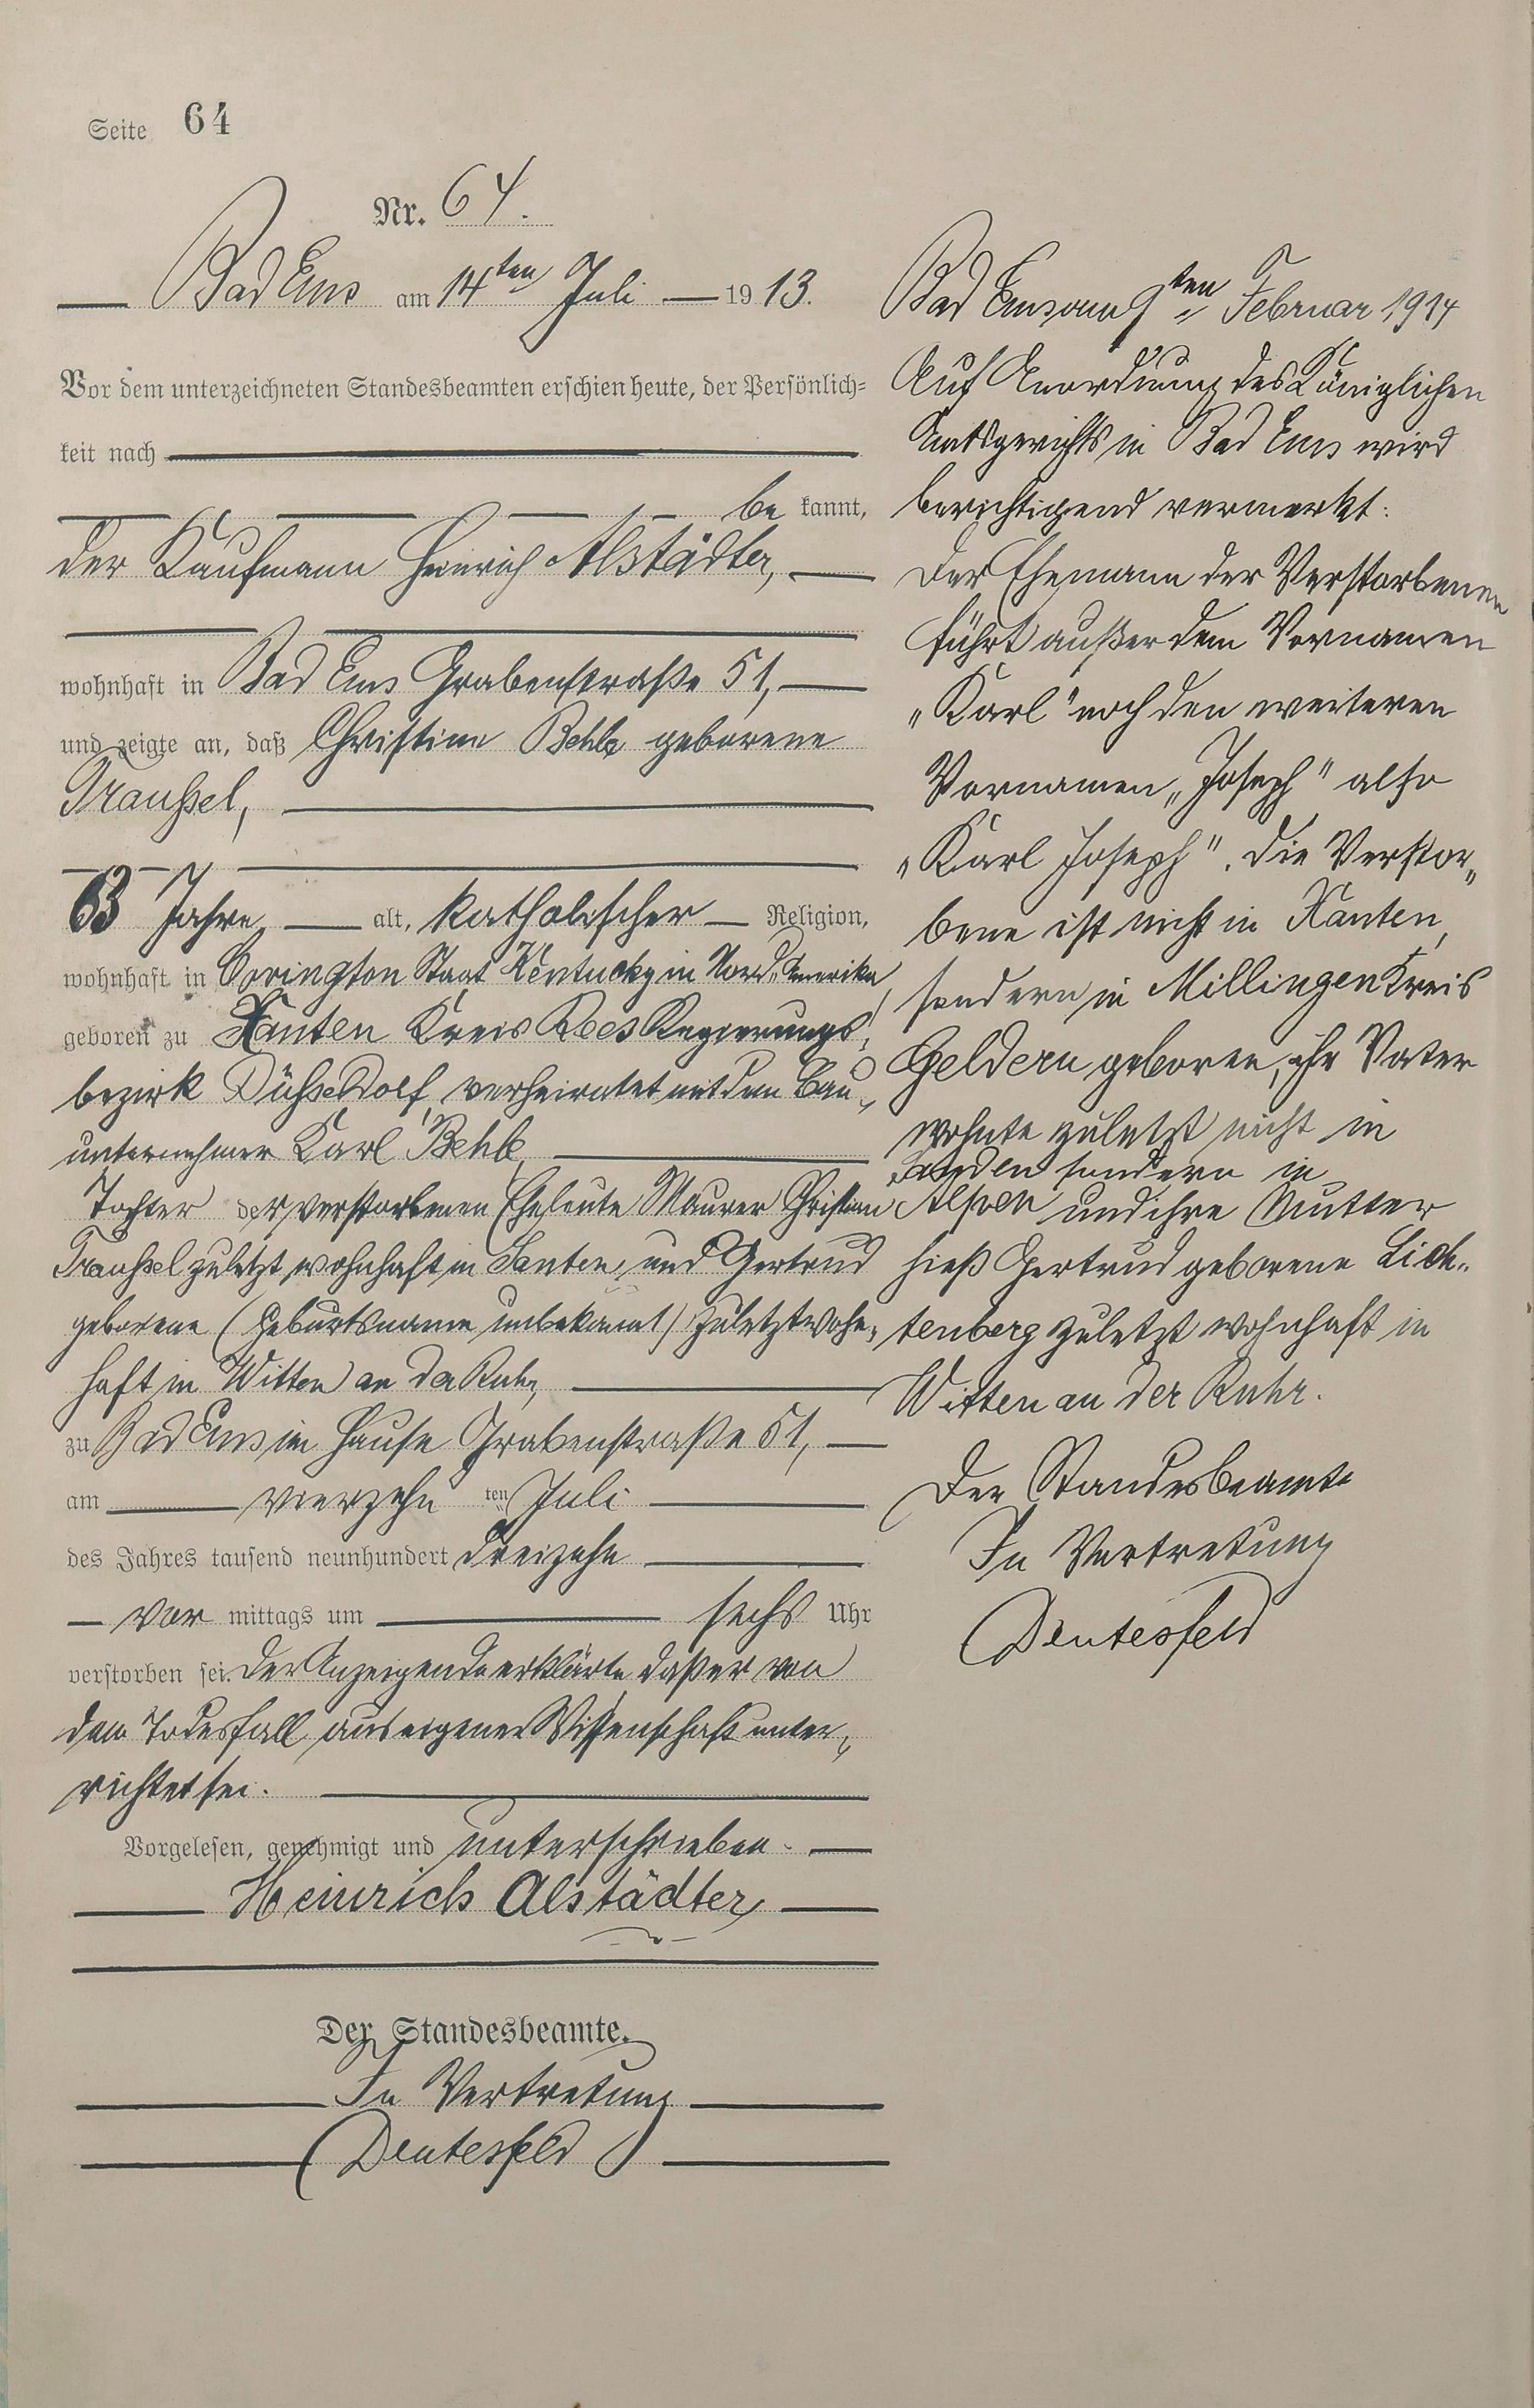 Seite 64
Nr. 64.
Bad Ems am 14ten Juli 1913.
Vor dem unterzeichneten Standesbeamten erschien heute, der Persönlich-
keit nach
be kannt,
der Kaufmann Heinrich Alstädter,
wohnhaft in Bad Ems Grabenstraße 51,
und zeigte an, daß Christine Behle geborene
Traußel,
63 Jahre alt, katholischer Religion,
wohnhaft in Covington Staat Kentucky in Nord-Amerika,
geboren zu Xanten Kreis Rees Regierungs-
bezirk Düsseldorf, verheiratet mit dem Bau-
unternehmer Karl Behle,
Tochter der verstorbenen Eheleute Maurer Christian
Traußel zuletzt wohnhaft in Xanten, und Gertrud
geborene (Geburtsname unbekannt) zuletzt wohn-
haft in Witten an der Ruhr,
zu Bad Ems im Hause Grabenstraße 51,
am vierzehn ten Juli
des Jahres tausend neunhundert dreizehn
vor mittags um sechs Uhr
verstorben sei. Der Anzeigende erklärte, daß er von
dem Todesfall aus eigener Wissenschaft unter-
richtet sei.
Vorgelesen, genehmigt und unterschrieben.
Heinrich Alstädter
Der Standesbeamte.
In Vertretung
Deutesfeld
Bad Ems am 9ten Februar 1914
Auf Anordnung des Königlichen
Amtsgerichts in Bad Ems wird
berichtigend vermerkt:
Der Ehemann der Verstorbenen
führt außer dem Vornamen
„Karl" noch den weiteren
Vornamen „Joseph" also
„Karl Joseph". Die Verstor-
bene ist nicht in Xanten,
sondern in Millingen Kreis
Geldern geboren, ihr Vater
wohnte zuletzt nicht in
sondern in
Alpen und ihre Mutter
hieß Gertrud geborene Lich-
tenberg zuletzt wohnhaft in
Witten an der Ruhr.
Der Standesbeamte
In Vertretung
Deutesfeld